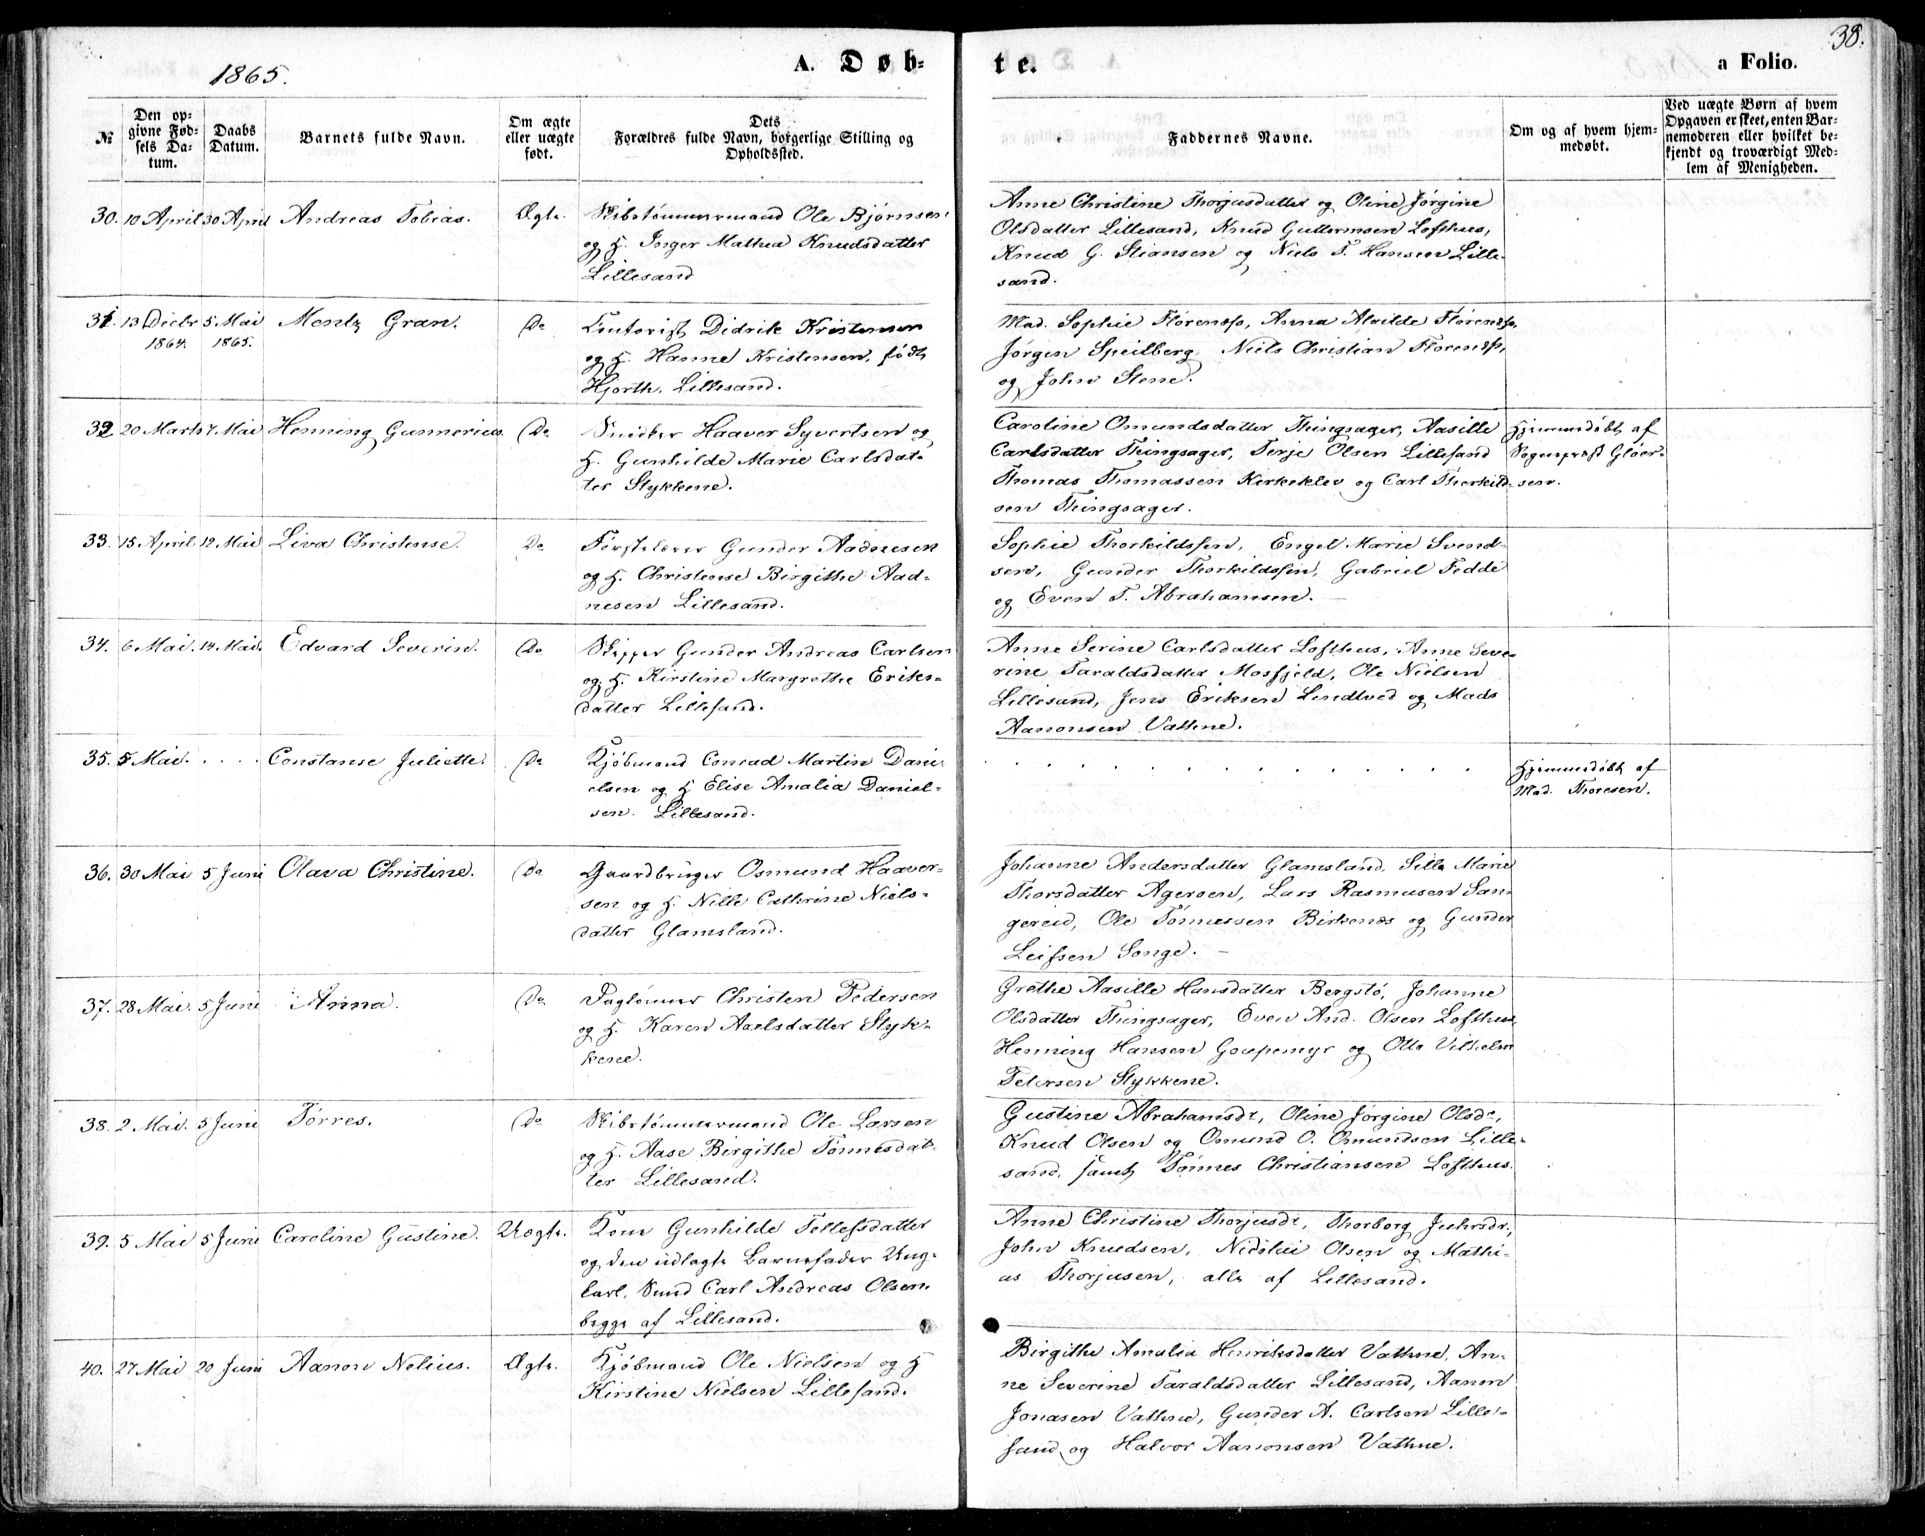 1865.
A. Døb-
te.
38.
a Folio.
№
Den op-
givne Fød-
sels Da-
tum.
Daabs
Datum.
Barnets fulde Navn.
Om ægte
eller uægte
født.
Dets
Forældres fulde Navn, borgerlige Stilling og
Opholdssted.
Faddernes Navne.
Om og af hvem hjem-
medøbt.
Ved uægte Børn af hvem
Opgaven er skeet, enten Bar-
nemoderen eller hvilket be-
kjendt og troværdigt Med-
lem af Menigheden.
30. 10 April 30 April Andreas Tobias. Ægte.
Skibstømmermand Ole Bjørnsen
og H. Inger Mathea Knudsdatter
Lillesand
Anne Christine Thorjusdatter og Oline Jørgine
Olsdatter Lillesand, Knud Guttormsen Lofthus,
Knud G. Stiansen og Niels T. Hansen Lille-
sand.
31. 13 Decbr 5 Mai Mentz Gran. Do
1864. 1865.
Contorist Didrik Kristensen
og H. Hanne Kristensen, født
Hjorth. Lillesand.
Mad. Sophie Florentss, Anna Alvilde Florentss,
Jørgen Speilberg, Niels Christian Florentss,
og John Stene.
32 20 Marts 7 Mai Henning Gunnerius. Do
Snidker Haaver Syvertsen og
H. Gunhilde Marie Carlsdat-
ter Stykkene.
Caroline Omundsdatter Thingsager, Aasille
Carlsdatter Thingsager, Terje Olsen Lillesand
Thomas Thomassen Kirkeklev og Carl Thorkild-
sen Thingsager.
Hjemmedøbt af
Sognepræst Gløer-
sen.
33. 15 April 12 Mai Liva Christense. Do
Førstelærer Gunder Aadnesen
og H. Christense Birgithe Aad-
nesen Lillesand.
Sophie Thorkildssen, Engel Marie Svend-
sen, Gunder Thorkildssen, Gabriel Fedde
og Even T. Abrahamsen.
34. 6 Mai. 14 Mai. Edvard Severin. Do
Skipper Gunder Andreas Carlsen
og H. Kirstine Margrethe Eriks-
datter Lillesand.
Anne Serine Carlsdatter Lofthus, Anne Seve-
rine Taraldsdatter Mosfjeld, Ole Nielsen
Lillesand, Jens Eriksen Lindtved og Mads
Aanonsen Vathne.
35. 5 Mai. . . . . Constanse Juliette. Do
Kjøbmand Conrad Martin Dani-
elsen og H Elise Amalia Daniel-
sen. Lillesand.
. . . . . . . . . . . . . .
Hjemmedøbt af
Mad. Thoresen.
36. 30 Mai 5 Juni Olava Christine. Do
Gaardbruger Osmund Haaver-
sen og H. Nille Cathrine Niels-
datter Glamsland.
Johanne Andersdatter Glamsland, Sille Marie
Thorsdatter Ageroen, Lars Rasmusen San-
gereid, Ole Tønnessen Birkenæs og Gunder
Leifsen Songe.
37. 28 Mai. 5 Juni Anna. Do
Daglønner Christen Pedersen
og H. Karen Axelsdatter Styk-
kene.
Grethe Aasille Hansdatter Bergstø, Johanne
Olsdatter Thingsager, Even And. Olsen Lofthus,
Henning Hansen Goupemyr og Otto Vilhelm
Petersen Stykkene.
38. 2 Mai. 5 Juni Tørres. Do
Skibstømmermand Ole Larsen
og H. Aase Birgithe Tønnesdat-
ter Lillesand.
Gustine Abrahamsdr, Oline Jørgine Olsdr,
Knud Olsen og Omund O. Omundsen Lille-
sand, samt Tønnes Christiansen Lofthus.
39. 5 Mai 5 Juni Caroline Gustine. Uægte.
Kone Gunhilde Tellefsdatter
og den udlagte Barnefader Ung-
karl. Smed Carl Andreas Olsen
begge af Lillesand.
Anne Christine Thorjusdr, Thorborg Juhrsdr,
John Knudsen, Nicolai Olsen og Mathi-
as Thorjusen, alle af Lillesand.
40. 27 Mai 20 Juni Aanon Nelius. Ægte.
Kjøbmand Ole Nielsen og H
Kirstine Nielsen Lillesand.
Birgithe Amalia Henriksdatter Vathne, An-
ne Severine Taraldsdatter Lillesand, Aanon
Jonasen Vathne, Gunder A. Carlsen Lille-
sand og Halvor Aanonsen Vathne.